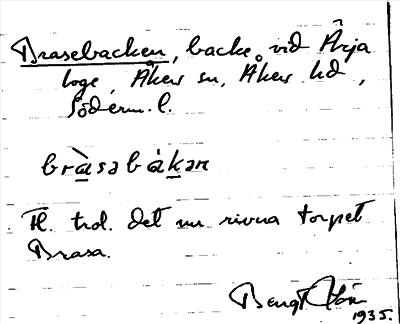 Brasebacken, backe vid Ärja
loge, Åkers sn, Åkers hd,
Söderm. l.
bràsabákan
Tl. trol. det nu rivna torpet
Brasa.
Bengt
1935.